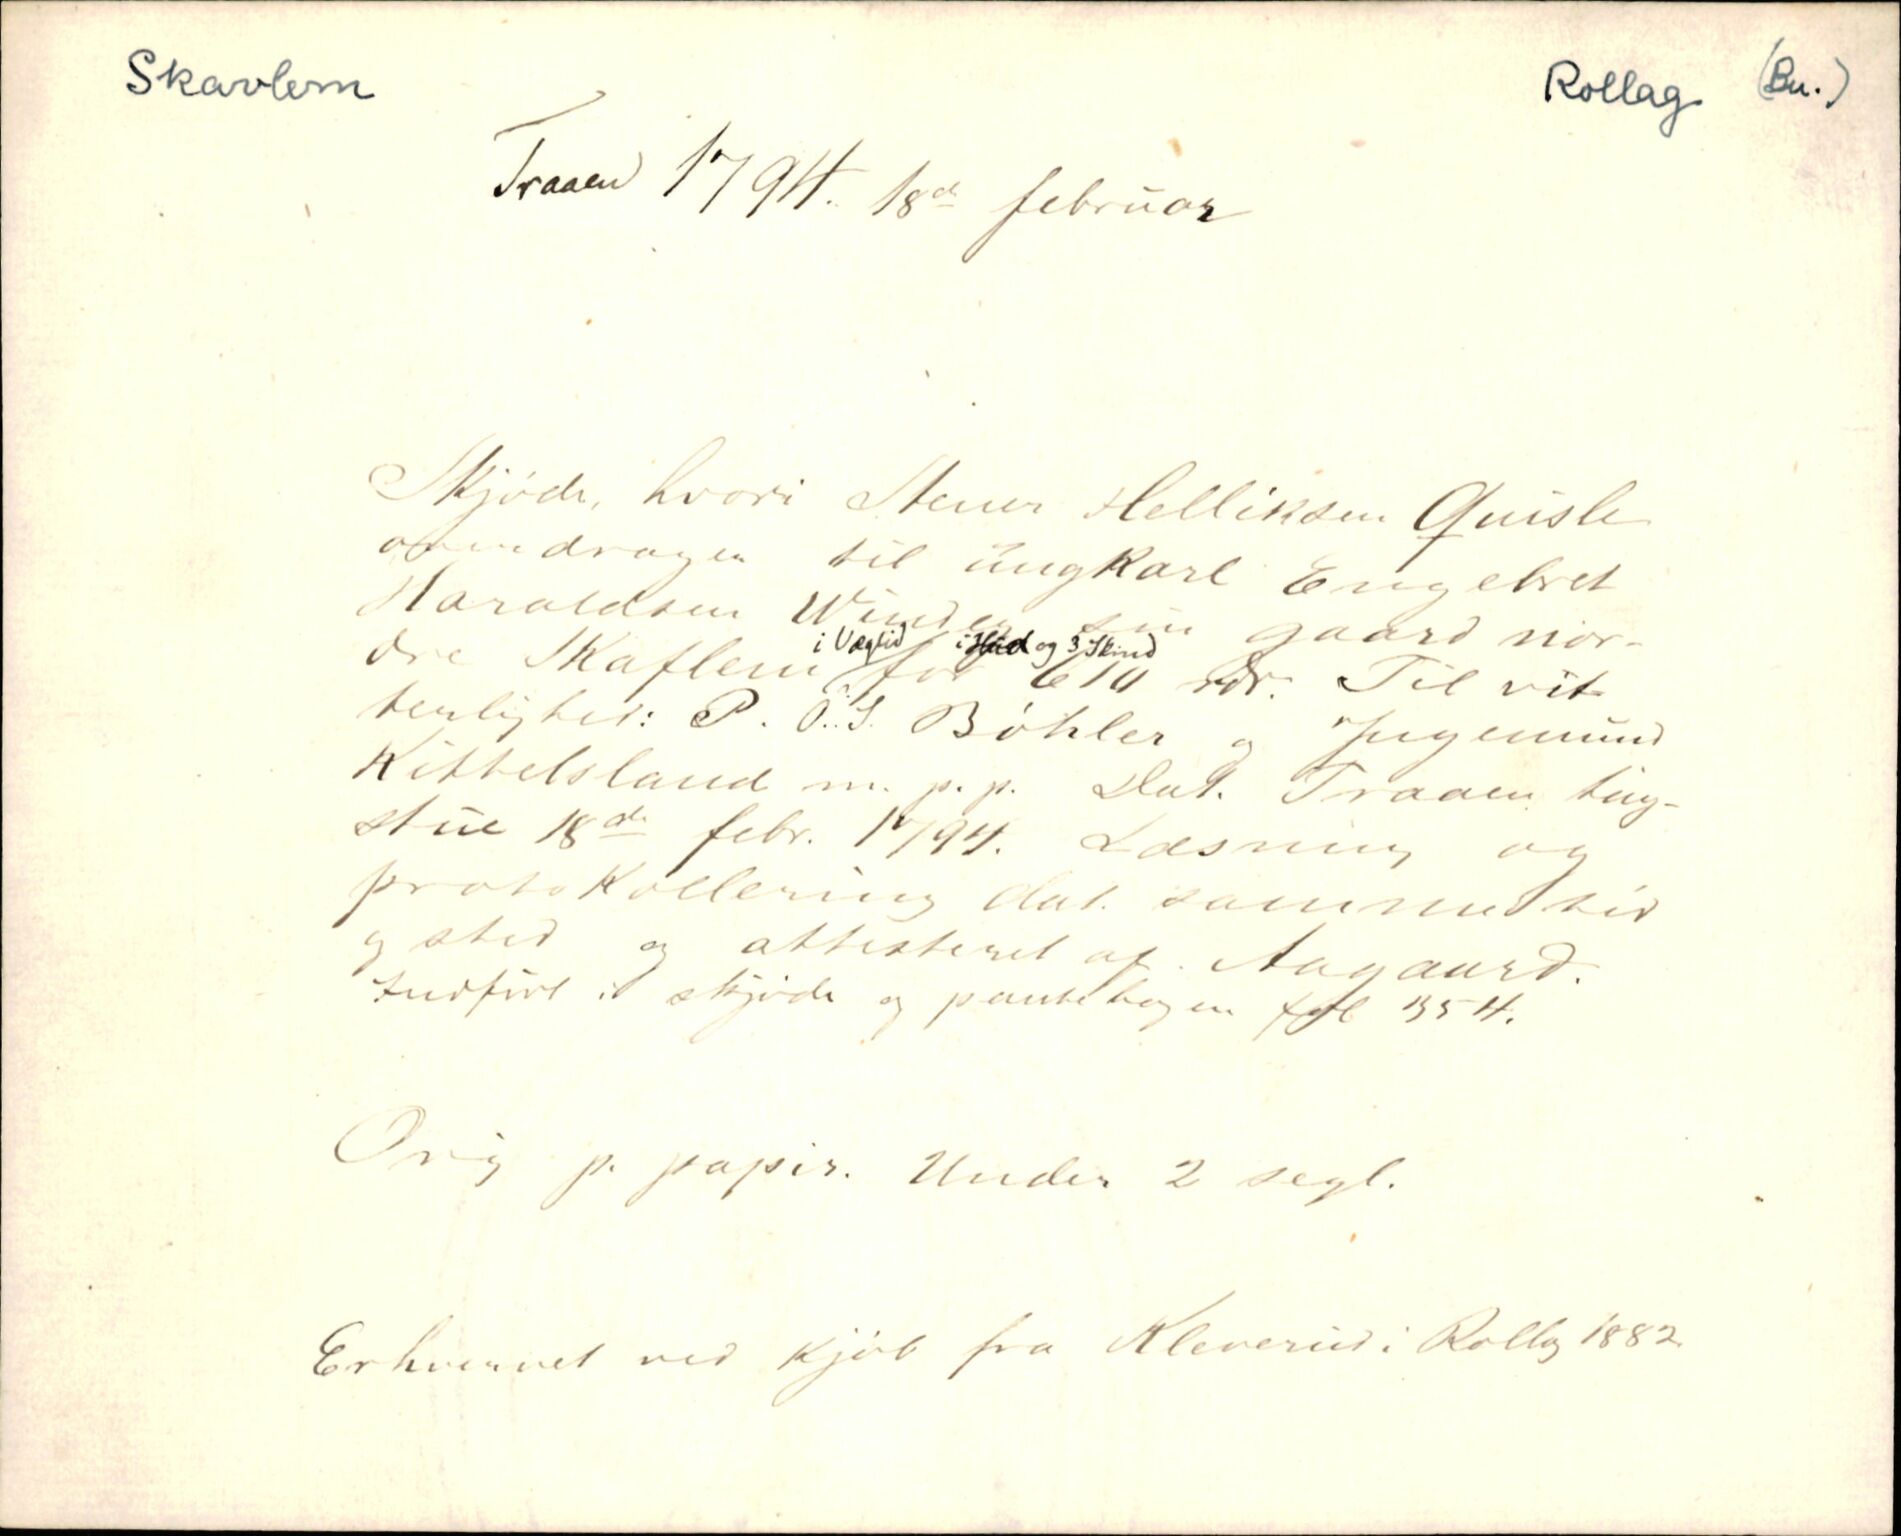 Skavlem
Rollag (Bu.)
Traaen 1794. 18de februar
Skjöde, hvori Stener Helliksen Quisle
overdragen til ungkarl Engebret
Haraldsen Winden sin gaard nör-
i Væglid i Hud og 3 Skind
dre Skaflem for 610 rdr. Til vit-
terlighet: P. O. S. Böhler og Ingemund
Kittelsland m. p. p. Dat. Traaen ting-
stue 18de febr. 1794. Læsning og
protokollering dat. samme tid
og sted og attesteret af Aagaard.
Indfört i skjöde og pantebogen fol 354.
Orig p. papir. Under 2 segl.
Erhvervet ved kjöb fra Kleverud i Rollag 1882.